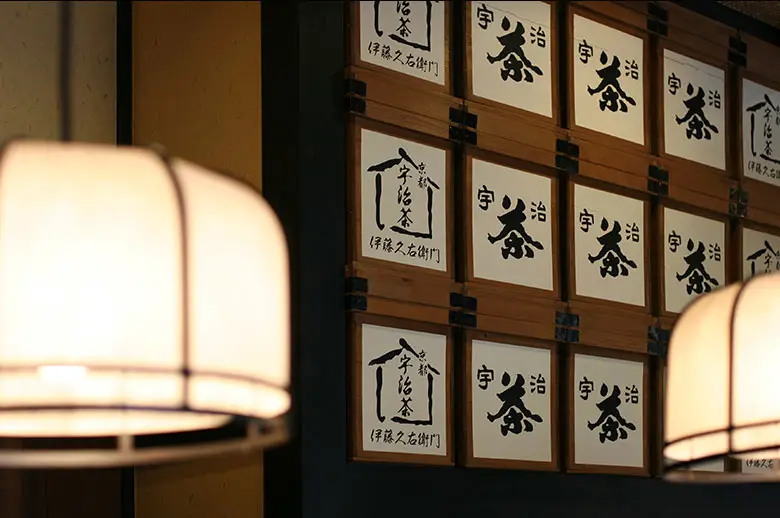 宇治茶
伊藤久右衛門
宇治
茶
宇治
茶
宇治
茶
宇治茶
伊藤久右衛門
京都
宇治茶
伊藤久右衛門
宇治
茶
宇治
茶
宇治
茶
宇治
京都
宇治茶
伊藤久右衛門
宇治
茶
宇治
茶